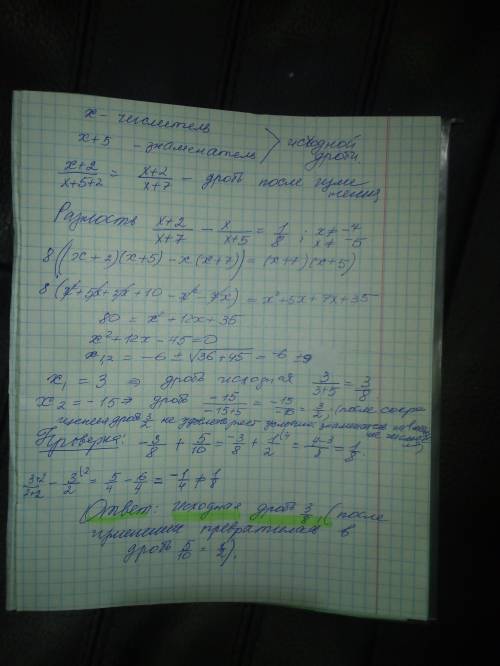 x - числитель
x+5 - знаменатель } исходной дроби
(x+2)/(x+5+2) = (x+2)/(x+7) - дробь после изменения
Разность (x+2)/(x+7) - x/(x+5) = 1/8 ; x≠-7 x≠-5
8((x+2)(x+5) - x(x+7)) = (x+7)(x+5)
8(x²+5x+2x+10-x²-7x) = x²+5x+7x+35
80 = x²+12x+35
x²+12x-45=0
x1,2 = -6 ± √(36+45) = -6 ±9
x1 = 3 ⇒ дробь исходная 3/(3+5) = 3/8
x2 = -15 ⇒ дробь -15/(-15+5) = -15/-10 = 3/2 (после сокра
щения дробь 3/2 не удовлетворяет условию: знаменатель на 5
Проверка: -3/8 + 5/10 = -3/8 + 1/2 = (4-3)/8 = 1/8.
(3+2)/(2+2) - 3/2 = 5/4 - 6/4 = -1/4 ≠ 1/8
Ответ: исходная дробь 3/8 (после
изменения превратилась в
дробь 5/10 = 1/2).